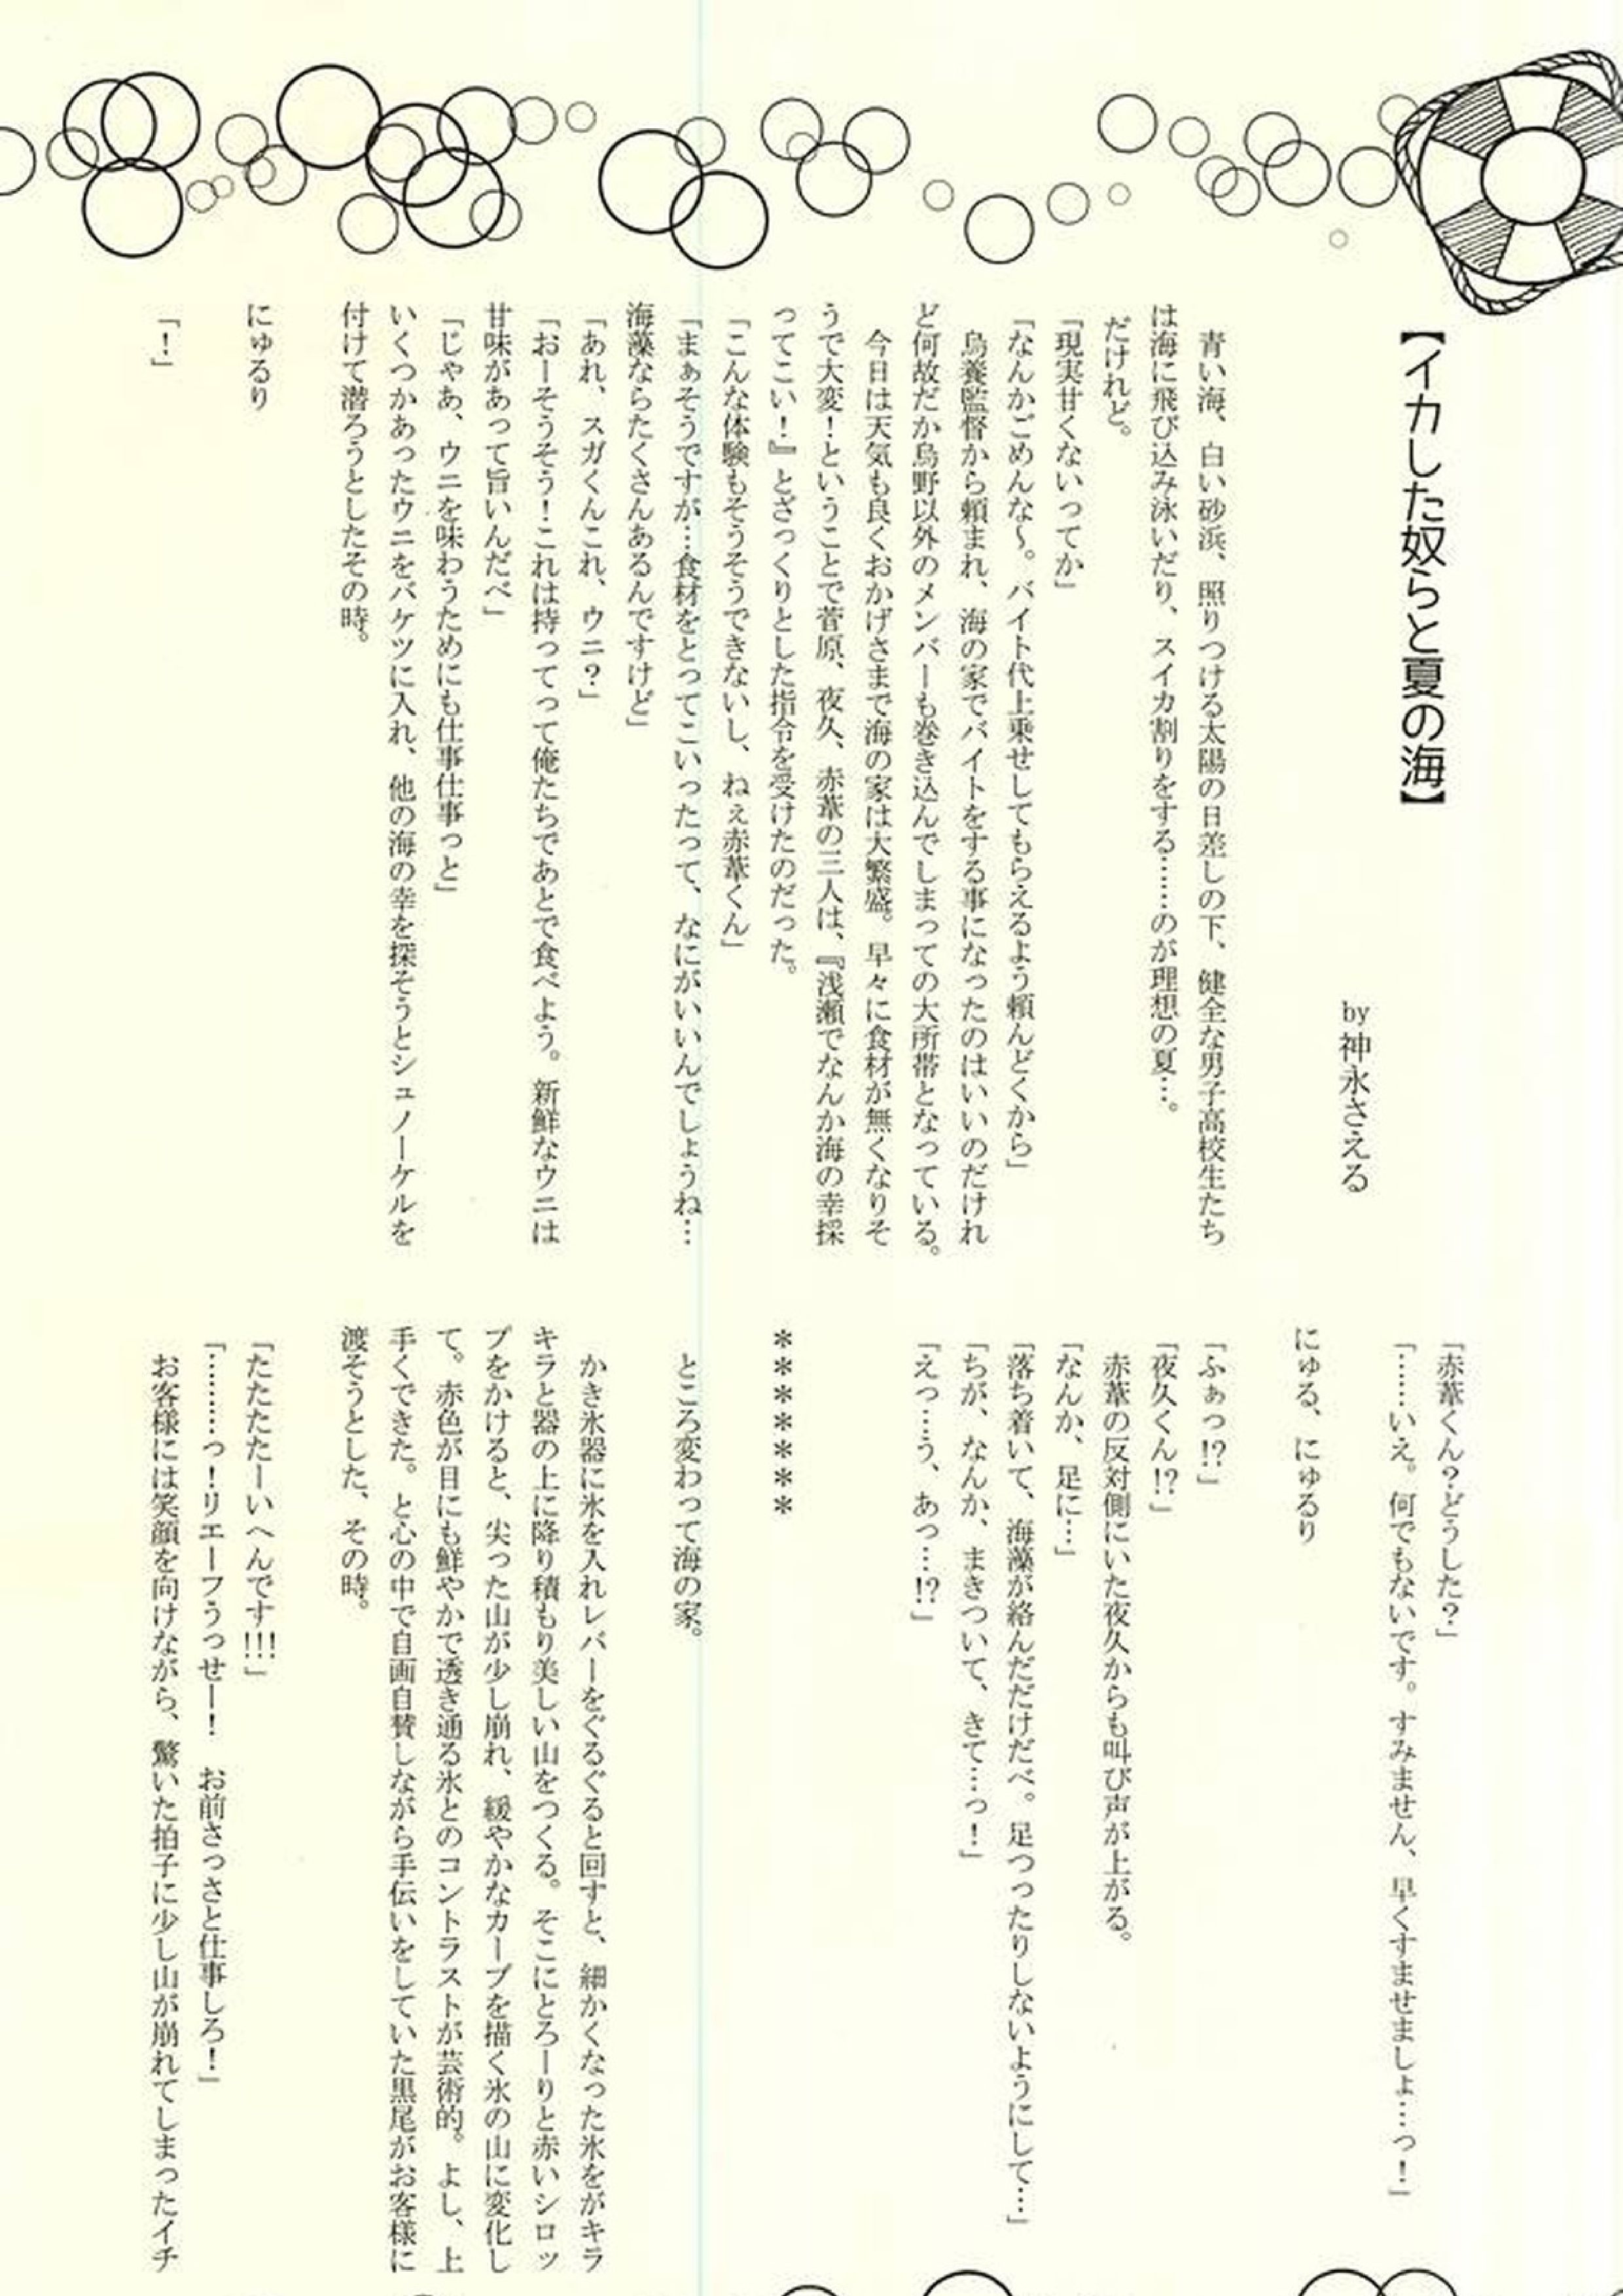 【イカした奴らと夏の海】
by 神永さえる
　青い海、白い砂浜、照りつける太陽の日差しの下、健全な男子高校生たち
は海に飛び込み泳いだり、スイカ割りをする……のが理想の夏…。
　だけれど。
「現実甘くないってか」
「なんかごめんな〜。バイト代上乗せしてもらえるよう頼んどくから」
　烏養監督から頼まれ、海の家でバイトをする事になったのはいいのだけれ
ど何故だか烏野以外のメンバーも巻き込んでしまっての大所帯となっている。
　今日は天気も良くおかげさまで海の家は大繁盛。早々に食材が無くなりそ
うで大変！ということで菅原、夜久、赤葦の三人は、『浅瀬でなんか海の幸採
ってこい！』とざっくりとした指令を受けたのだった。
「こんな体験もそうそうできないし、ねぇ赤葦くん」
「まぁそうですが…食材をとってこいったって、なにがいいんでしょうね…
海藻ならたくさんあるんですけど」
「あれ、スガくんこれ、ウニ？」
「おーそうそう！これは持ってって俺たちであとで食べよう。新鮮なウニは
甘味があって旨いんだべ」
「じゃあ、ウニを味わうためにも仕事仕事っと」
いくつかあったウニをバケツに入れ、他の海の幸を探そうとシュノーケルを
付けて潜ろうとしたその時。
にゅるり
「！」
「赤葦くん？どうした？」
「……いえ。何でもないです。すみません、早くすませましょ…っ！」
にゅる、にゅるり
「ふぁっ!?」
「夜久くん!?」
　赤葦の反対側にいた夜久からも叫び声が上がる。
「なんか、足に…」
「落ち着いて、海藻が絡んだだけだべ。足つったりしないようにして…」
「ちが、なんか、まきついて、きて…っ！」
「えっ…う、あっ…!?」
＊＊＊＊＊＊＊
　ところ変わって海の家。
　かき氷器に氷を入れレバーをぐるぐると回すと、細かくなった氷をがキラ
キラと器の上に降り積もり美しい山をつくる。そこにとろーりと赤いシロッ
プをかけると、尖った山が少し崩れ、緩やかなカーブを描く氷の山に変化し
て。赤色が目にも鮮やかで透き通る氷とのコントラストが芸術的。よし、上
手くできた。と心の中で自画自賛しながら手伝いをしていた黒尾がお客様に
渡そうとした、その時。
「たたたたーいへんです!!!」
「………っ！リエーフうっせー！　お前さっさと仕事しろ！」
　お客様には笑顔を向けながら、驚いた拍子に少し山が崩れてしまったイチ